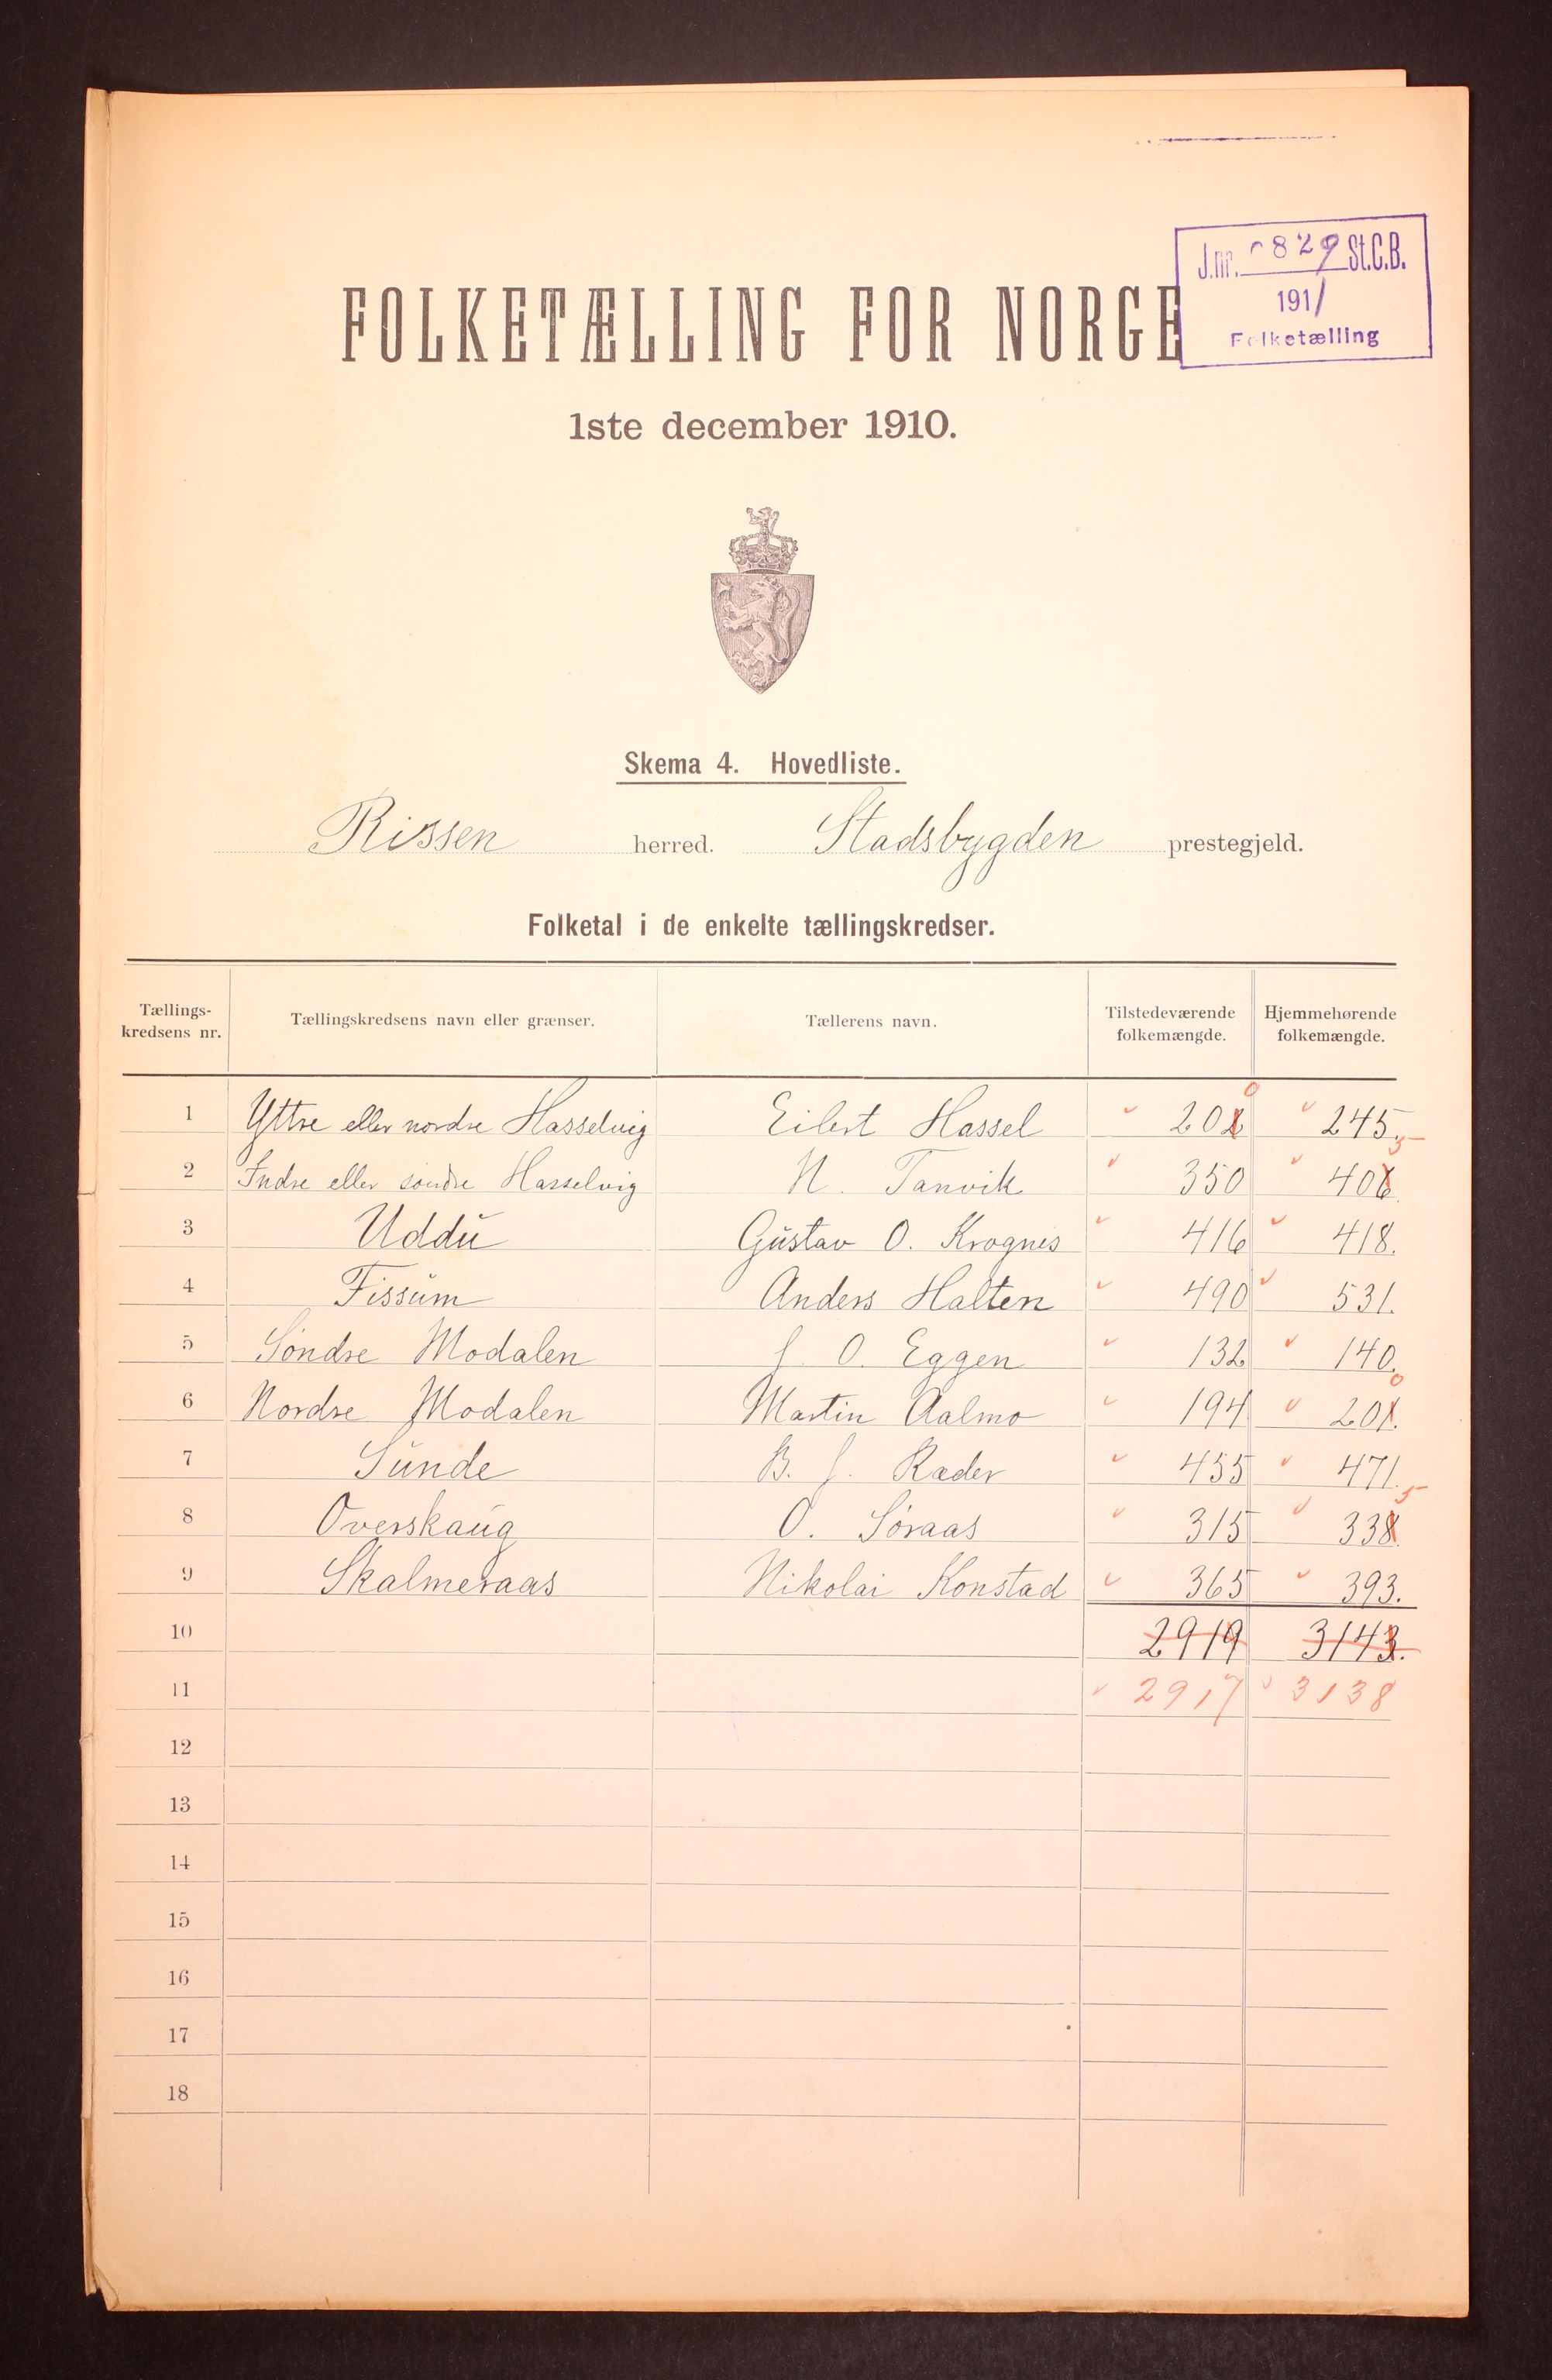 J.nr. 829 St.C.B.
1911
Folketælling
FOLKETÆLLING FOR NORGE
1ste december 1910.
Skema 4. Hovedliste.
Rissen herred. Stadsbygden prestegjeld.
Folketal i de enkelte tællingskredser.
Tællings-kredsens nr. Tællingskredsens navn eller grænser. Tællerens navn. Tilstedeværende folkemængde. Hjemmehørende folkemængde.
1 Yttre eller nordre Hasselvig Eilert Hassel 202 0 245.
2 Indre eller søndre Hasselvig N. Tanvik 350 406 5
3 Uddu Gustav O. Krognes 416 418.
4 Fissum Anders Halten 490 531.
5 Søndre Modalen J. O. Eggen 132 140.
6 Nordre Modalen Martin Aalmo 194 201. 0
7 Sunde B. J. Rader 455 471.
8 Overskaug O. Søraas 315 338. 5
9 Skalmeraas Nikolai Konstad 365 393.
10 2919 3143.
11 2917 3138
12
13
14
15
16
17
18